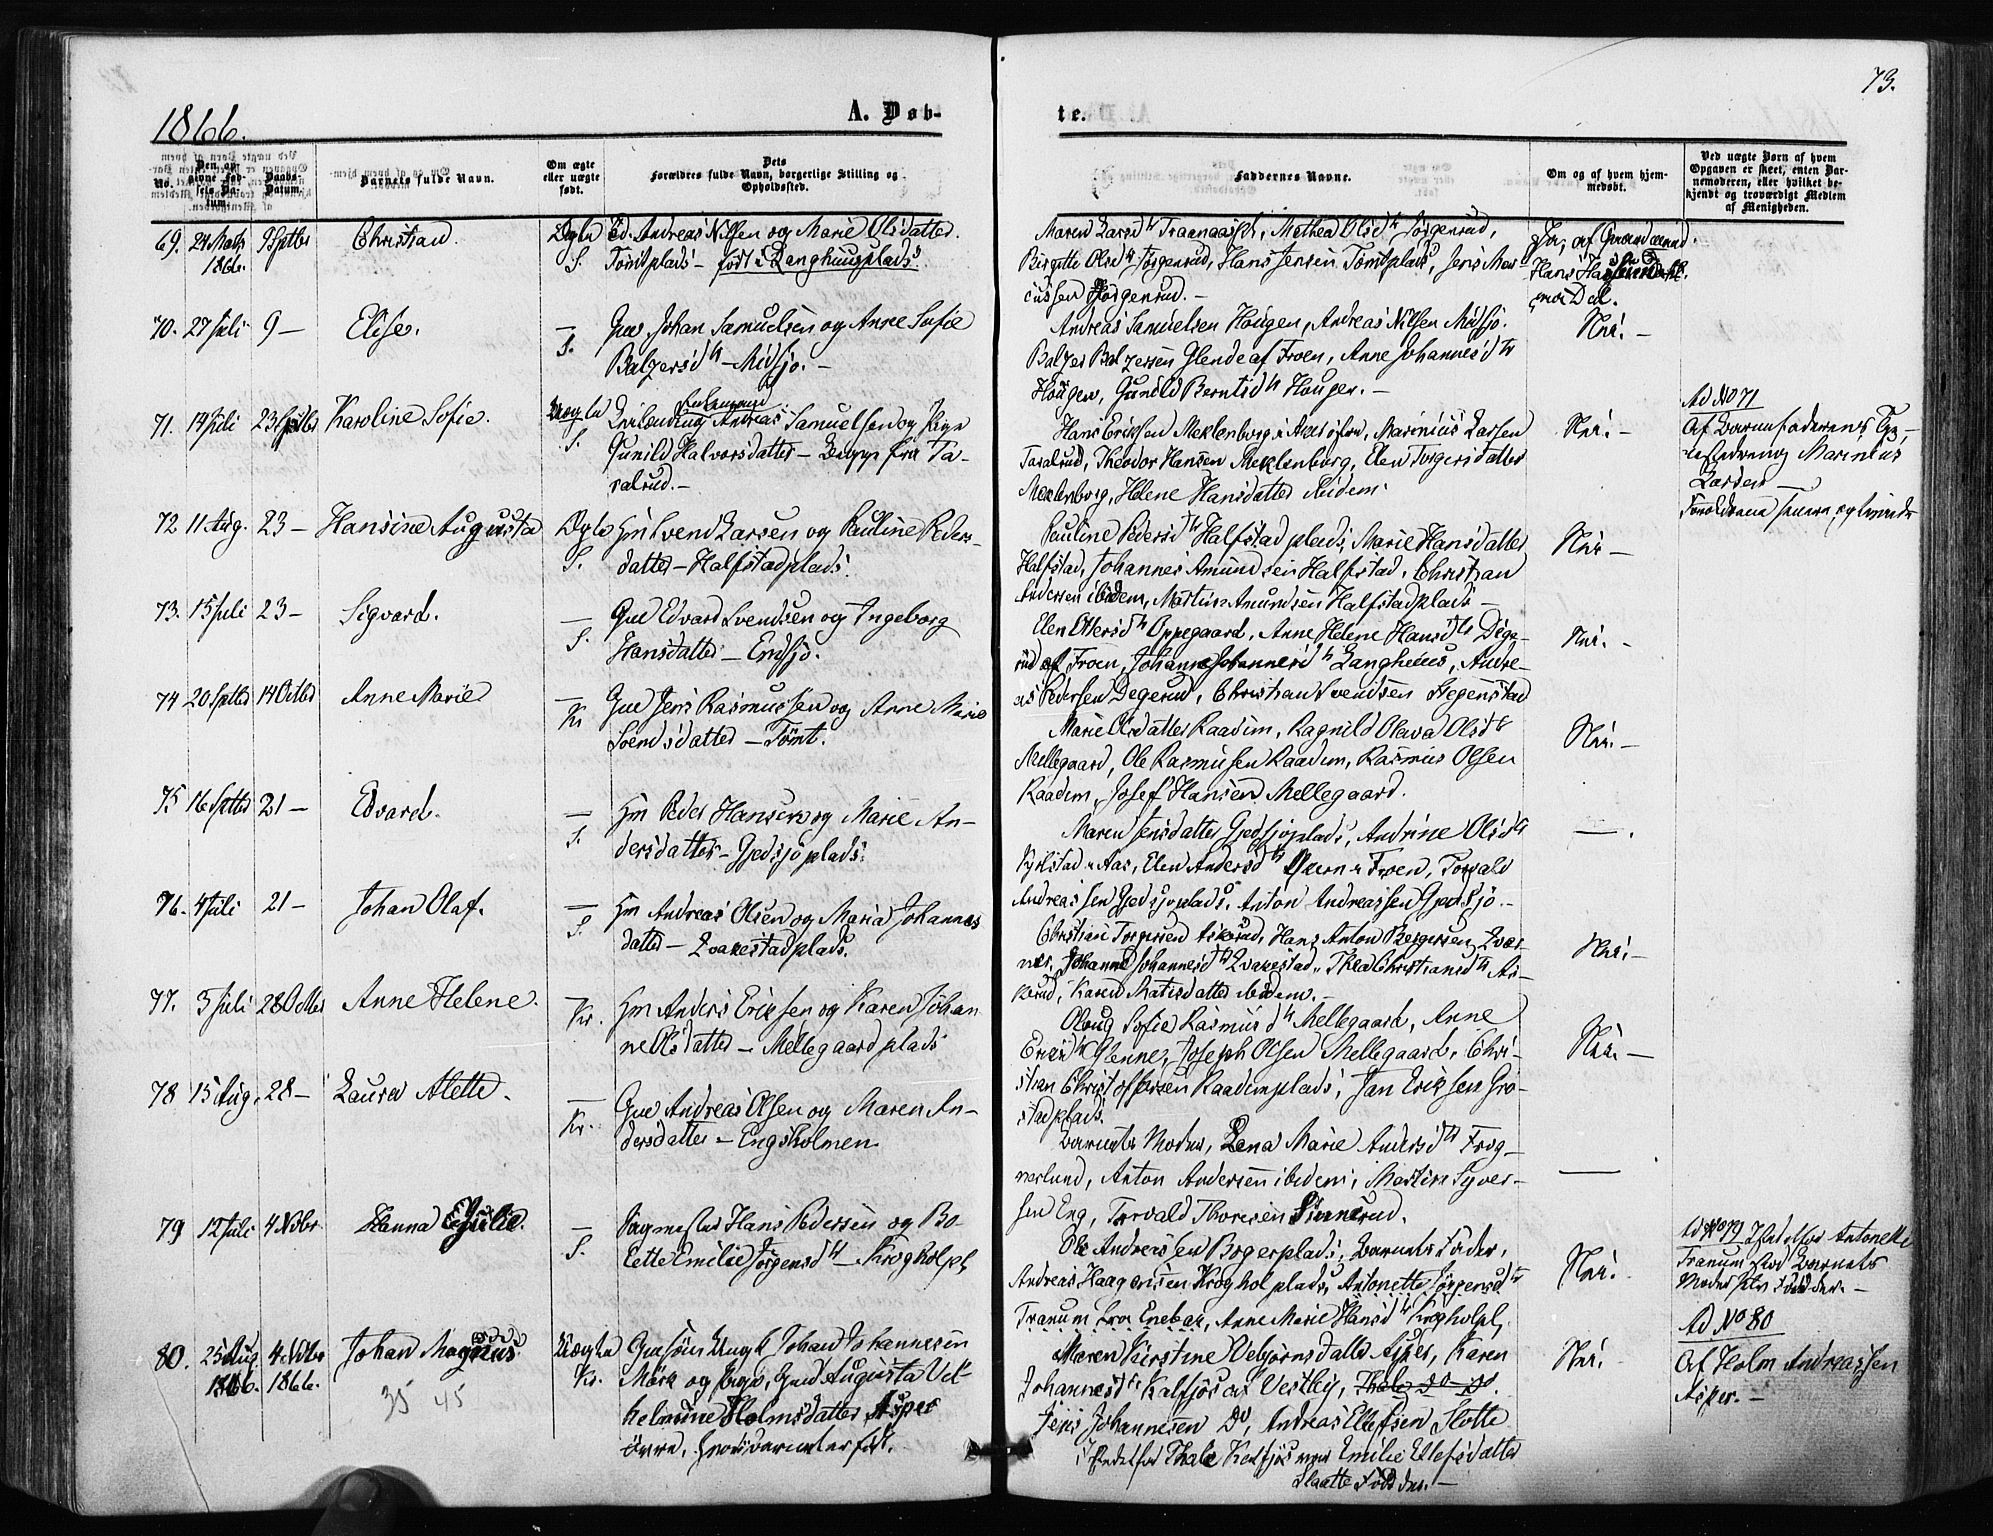 1866.
A. Døb-
te.
73.
No.
Den an-
givne Fød-
sels Da-
tum.
Daabs-
Datum.
Barnets fulde Navn.
Om ægte
eller uægte
født.
Dets
Forældres fulde Navn, borgerlige Stilling og
Opholdssted.
Faddernes Navne.
Om og af hvem hjem-
medøbt.
Ved uægte Børn af hvem
Opgaven er skeet, enten Bar-
nemoderen, eller hvilket be-
kjendt og troværdigt Medlem
af Menigheden.
69. 24 Marts 9 Septbr Christian. Ægte Andreas Nilsen og Marie Olsdatter
1866. S. Tømtplads – født i Langhuusplads.
Maren Larsd, Mathea Olsd Jørgenrud,
Birgitte Olsd Jørgenrud, Hans Jensen Tømtplads, Jens Mar-
cussen Jørgenrud.–
Ja, af
Hans
70. 27 Juli 9 – Elise. – Gm Johan Samuelsen og Anne Sofie
S. Balzersd – Midsjø.–
Andreas Samuelsen Hougen, Andreas Nilsen Midsjø.
Balzer Balzersen Glende af Froen, Anne Johannesd
Hougen, Gunild Berntsd Hougen.–
Nei.–
71. 14 Juli 23 Septbr Karoline Sofie. Uægte Andreas Samuelsen og Pige
S. Gunild Halvorsdatter – Begge fra Ta-
ralrud.–
Hans Eriksen Meklenborg, Marinius Larsen
Taralrud, Theodor Hansen Meklenborg, Elen Torgersdatter
Meklenborg, Helene Hansdatter ibidem.
Nei.–
Ad No 71
Af Barnefaderen og
Marinius
Larsen –
72 11 Aug. 23 – Hansine Augusta Ægte Hm Svend Larsen og Pauline Peders-
S. datter – Halfstadplads.
Pauline Pedersd Halfstadplads, Marie Hansdatter
Halfstad, Johannes Amundsen Halfstad, Christian
Andersen ibidem, Martin Amundsen Halfstadplads –
Nei –
73. 15 Juli 23 – Sigvard. – Gm Edvard Svendsen og Ingeborg
S. Hansdatter – Endsjø.
Elen Ottersd Oppegaard, Anne Helene Hansd Dege-
rud af Froen, Johanne Johannesd Langhuus, Andre-
as Pedersen Degerud, Christian Svendsen Stegenstad
Nei.–
74 20 Septbr 14 Octbr Anne Marie – Gm Jens Rasmussen og Anne Marie
Kr Svendsdatter – Tømt.
Marie Olsdatter Raadim, Ragnild Olava Olsd
Mellegaard, Ole Rasmussen Raadim, Rasmus Olsen
Raadim, Josef Hansen Mellegaard.
Nei.–
75 16 Septbr 21 – Edvard. – Hm Peder Hansen og Marie An-
S. dersdatter – Gjedsjøplads.
Maren Jensdatter Gjedsjøplads, Andrine Olsd
i Aas, Elen Andersd Qvern i Froen, Torvald
Andreassen Gjedsjøplads, Anton Andreassen Gjedsjø.–
–.
76. 4 Juli 21 – Johan Olaf. – Hm Andreas Olsen og Maria Johannes
S. datter – Qvakestadplads.
Christian Torgersen Askerud, Hans Anton Bergersen Qvær-
ner, Johanne Johannesd Qvakestad, Thea Christiansd As-
kerud, Karen Matisdatter ibidem.–
Nei.–
77. 5 Juli 28 Octbr Anne Helene. – Hm Anders Eriksen og Karen Johan
Kr. ne Olsdatter – Mellegaardplads
Oloug Sofie Rasmusd Mellegaard, Anne
Ericsd Glenne, Joseph Olsen Mellegaard, Chri-
stian Christoffersen Raadimplads, Jan Eriksen Grø-
stadplads.
Nei.–
78 15 Aug. 28 – Laura Alette. – Gm Andreas Olsen og Maren An-
Kr. dersdatter – Engsholmen
Barnets Moder, Lena Marie Andersd Frog-
nerlund, Anton Andersen ibidem, Martin Syver-
sen Eng, Torvald Thoresen Sinnerud.
–
79 12 Juli 4 Novbr Hanna Julie. – Hans Pedersen og Bo-
S. lette Emilie Jørgensd – Krogholpl,
Ole Andreassen Bogerplads, Barnets Fader,
Andreas Haagensen Krogholplads, Antonette Jørgensd
Tranum fra Enebak, Anne Marie Hansd Krogholpl,
Nei.
Ad No 79 Istedetfor Antonette
Tranum stod Barnets
Moder selv Fadder.–
80. 25 Aug. 4 Novbr Johan Magnus. Uægte Gaardsøn Ungk Johan Johannesen
1866. 1866. Kr. Mørk og Pige, Gaard Augusta Vil-
35 45 helmine Holmsdatter Asper
øvre,
Maren Kirstine Vebjørnsdatter Asper, Karen
Johannesd Kalfjøs av Vestby, Thale Do Do.
Jens Johannesen Do, Andreas Ellefsen Slotte
istedetfor Thale Kalfjøs var Emilie Ellefsdatter
Slaatte Fadder.–
Nei.
Ad No 80
Af Holm Andreassen
Asper.–